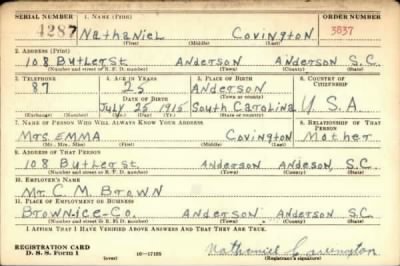 SERIAL NUMBER 1. NAME (Print) ORDER NUMBER
4287 Nathaniel Covington 3837
(First) (Middle) (Last)
2. ADDRESS (Print)
108 Butler St Anderson Anderson S.C.
(Number and street or R. F. D. number) (Town) (County) (State)
3. TELEPHONE 4. AGE IN YEARS 5. PLACE OF BIRTH 6. COUNTRY OF CITIZENSHIP
87 25 Anderson
(Town or county)
DATE OF BIRTH
July 25 1915 South Carolina U S A
(Exchange) (Number) (Mo.) (Day) (Yr.) (State or country)
7. NAME OF PERSON WHO WILL ALWAYS KNOW YOUR ADDRESS 8. RELATIONSHIP OF THAT PERSON
Mrs. EMMA Covington Mother
(Mr., Mrs., Miss) (First) (Middle) (Last)
9. ADDRESS OF THAT PERSON
108 Butler St Anderson Anderson, S.C.
(Number and street or R. F. D. number) (Town) (County) (State)
10. EMPLOYER'S NAME
Mr. C. M. Brown
11. PLACE OF EMPLOYMENT OR BUSINESS
Brown-ice-Co. Anderson Anderson S.C.
(Number and street or R. F. D. number) (Town) (County) (State)
I AFFIRM THAT I HAVE VERIFIED ABOVE ANSWERS AND THAT THEY ARE TRUE.
REGISTRATION CARD
D. S. S. Form 1 (over) 16—17105 Nathaniel Covington
(Registrant's signature)